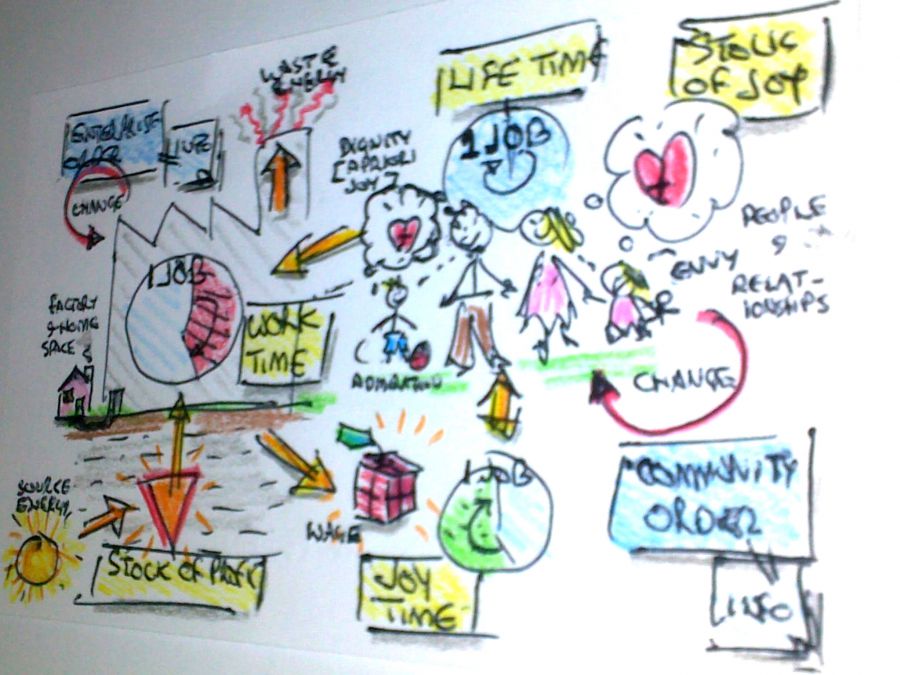 WASTE
ENERGY
LIFE TIME
STOCK
OF JOY
ENTERPRISE
ORDER
CHANGE
DIGNITY
[APRIORI
JOY]
1 JOB
1 JOB
PEOPLE
&
RELAT-
IONSHIPS
ENVY
FACTORY
& HOME
SPACE
WORK
TIME
ADMIRATION
CHANGE
SOURCE
ENERGY
WAGE
1 JOB
COMMUNITY
ORDER
STOCK OF PROFIT
JOY
TIME
INFO